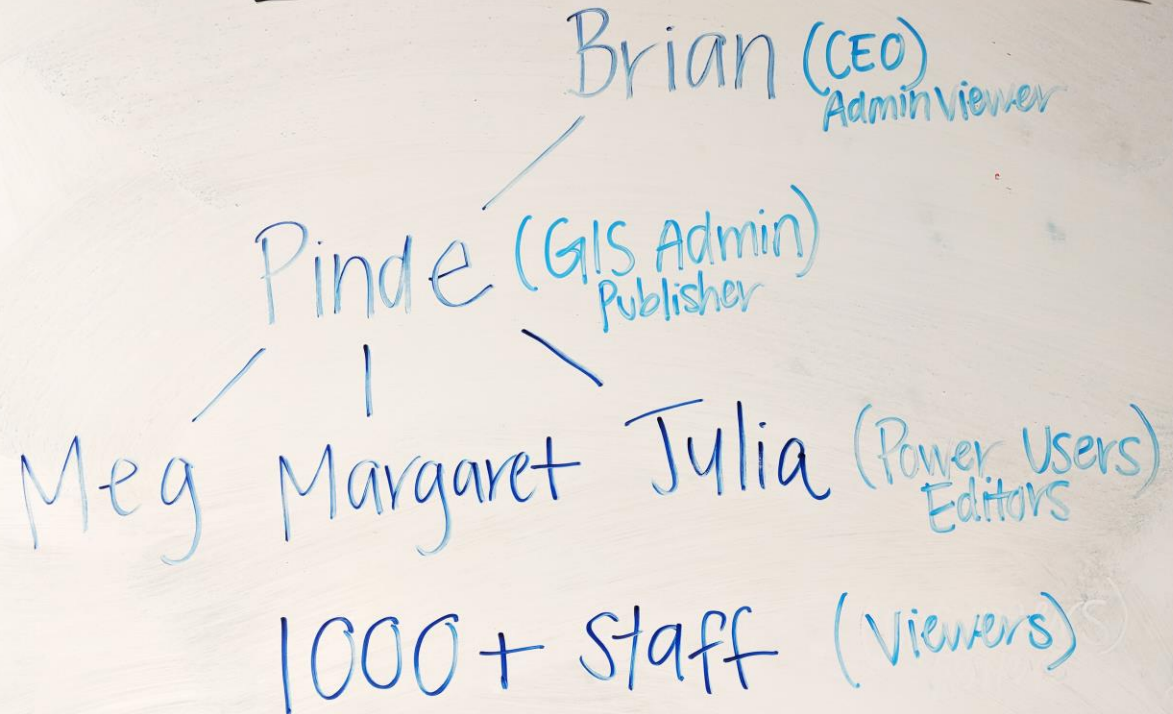 Brian (CEO)
Admin Viewer
Pinde (GIS Admin)
Publisher
Meg Margaret Julia (Power Users)
Editors
1000+ Staff (Viewers)